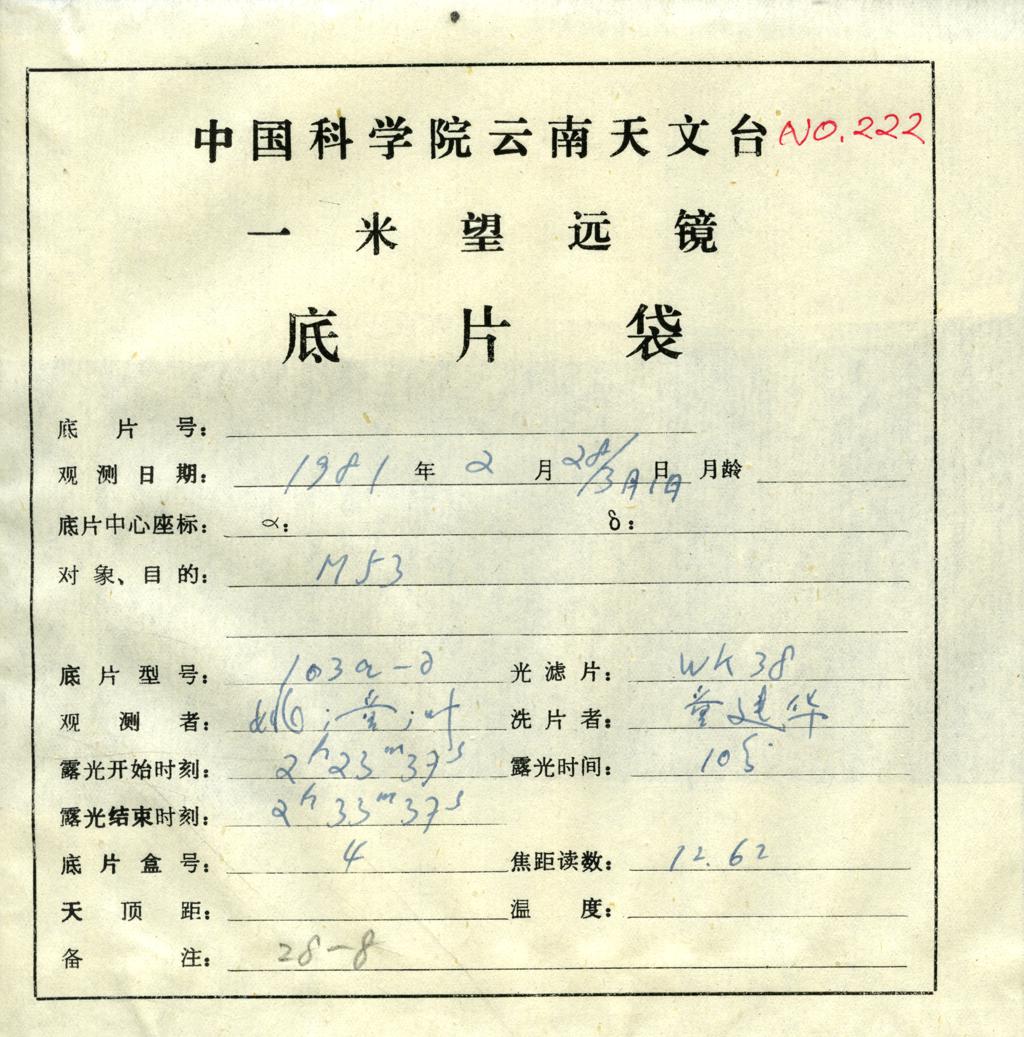 中国科学院云南天文台 NO.222
一米望远镜
底片袋
底片号：
观测日期： 1981 年 2 月 28/3月1日 日 月龄
底片中心座标： α： δ：
对象、目的： M53
底片型号： 103a-D 光滤片： WK38
观测者： 洗片者： 童建华
露光开始时刻： 2h23m37s 露光时间： 10分
露光结束时刻： 2h33m37s
底片盒号： 4 焦距读数： 12.62
天顶距： 温度：
备注： 28-8